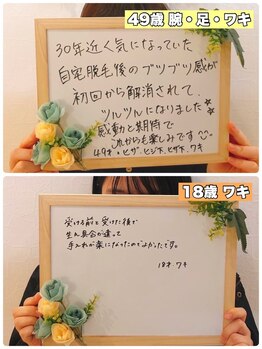 49歳 腕・足・ワキ
30年近く気になっていた
自宅脱毛後のブツブツ感が
初回から解消されて、
ツルツルになりました
感動と期待で
これからも楽しみです
49才・ヒザ、ヒジ下、ヒザ下、ワキ
18歳 ワキ
受ける前と受けた後で
生え具合が違って
手入れが楽になったのでよかったです。
18才・ワキ